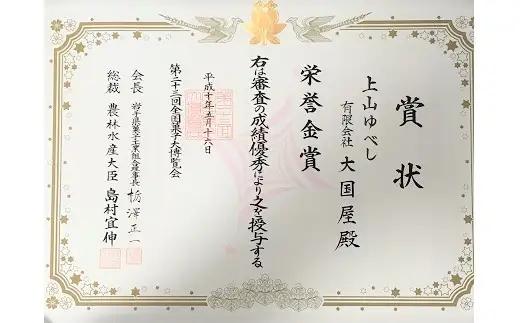 賞状
上山ゆべし
有限会社 大国屋殿
栄誉金賞
右は審査の成績優秀により之を授与する
平成十年五月十六日
第二十三回全国菓子大博覧会
会長 岩手県菓子工業組合理事長 栃澤正一
総裁 農林水産大臣 島村宜伸